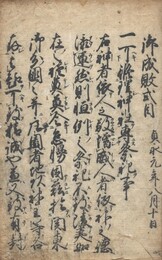 御成敗式目
貞永元年八月十日
一可修理神社専祭祀事
右神者依人之敬増威人者依神之徳
添運然則恒例之祭祀不致陵夷如
在之礼奠莫令怠慢因茲於関東
御分国々并庄園者地頭神主等各
存其趣可致精誠也兼又